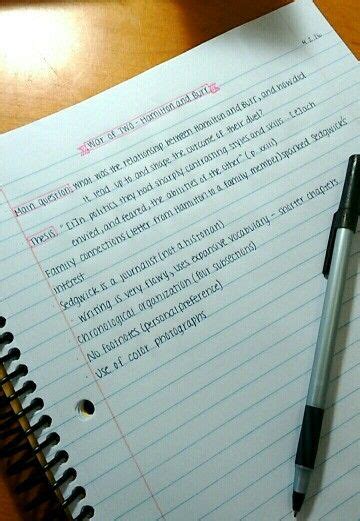 4.2.16
War of Two - Hamilton and Burr
Main question: What was the relationship between Hamilton and Burr, and how did
it lead up to and shape the outcome of their duel?
Thesis: "[I]n politics they had sharply contrasting styles and skills. [E]ach
envied, and feared, the abilities of the other" (p. xxiii)
Family connections (letter from Hamilton to a family member) sparked Sedgwick's
interest
Sedgwick is a journalist (not a historian)
- Writing is very flowy, uses expansive vocabulary - shorter chapters
- chronological organization (four subsections)
- No footnotes (personal preference)
- Use of color photographs